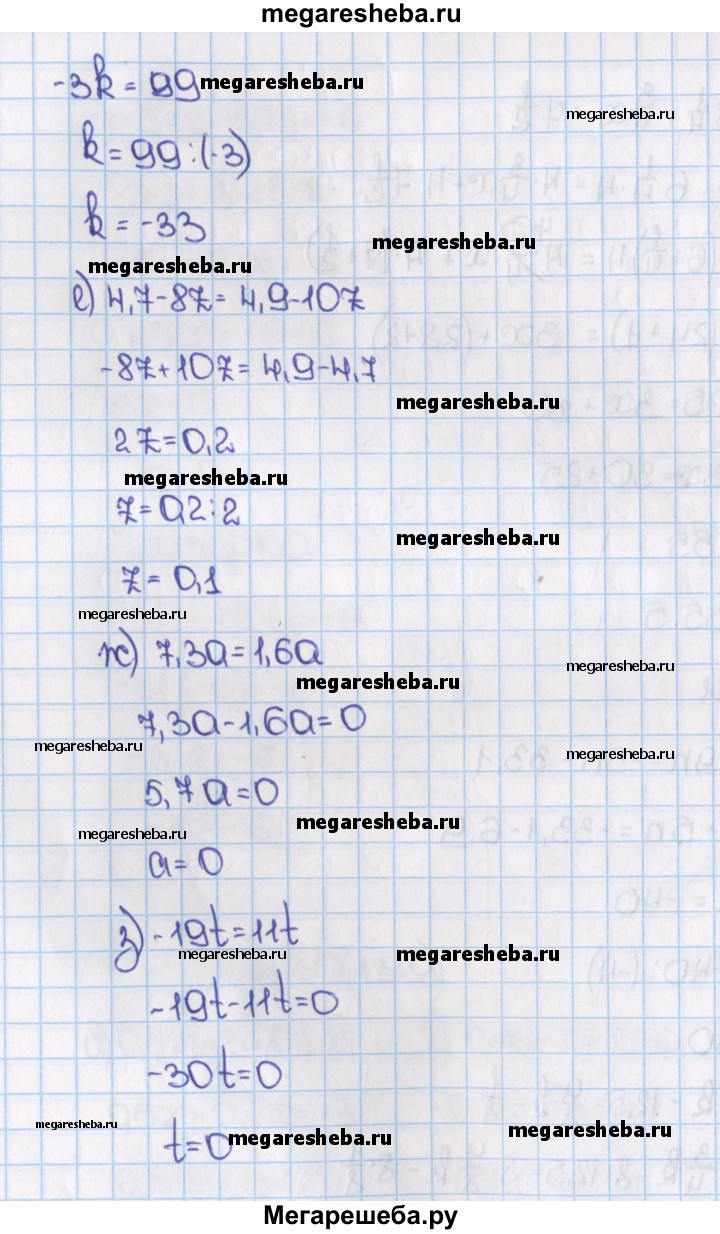 megaresheba.ru
-3k = 99 megaresheba.ru
megaresheba.ru
k = 99 : (-3)
k = -33
megaresheba.ru
megaresheba.ru
е) 4,7 - 8z = 4,9 - 10z
-8z + 10z = 4,9 - 4,7
megaresheba.ru
2z = 0,2
megaresheba.ru
z = 0,2 : 2
megaresheba.ru
z = 0,1
megaresheba.ru
ж) 7,3a = 1,6a
megaresheba.ru
megaresheba.ru
7,3a - 1,6a = 0
megaresheba.ru
megaresheba.ru
5,7a = 0
megaresheba.ru
megaresheba.ru
a = 0
з) -19t = 11t
megaresheba.ru
megaresheba.ru
-19t - 11t = 0
-30t = 0
megaresheba.ru
t = 0 megaresheba.ru
megaresheba.ru
Мегарешеба.ру